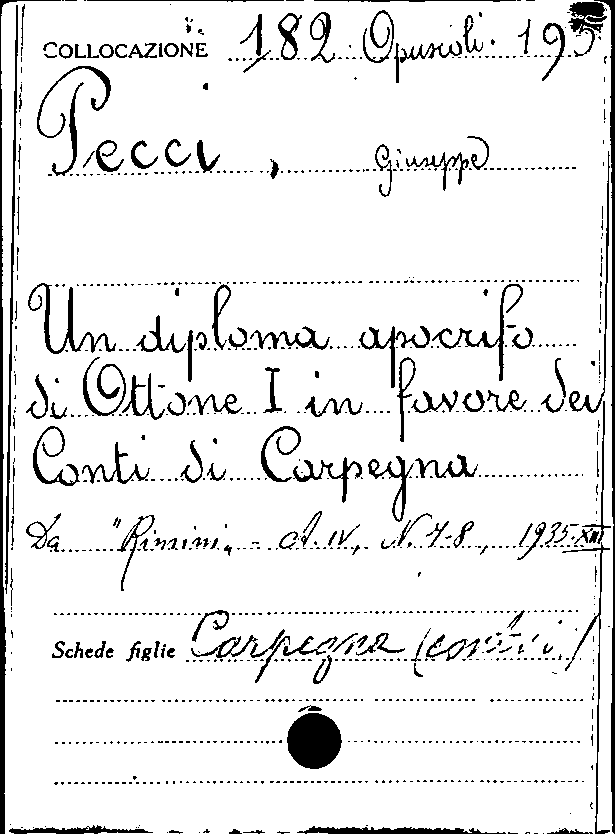 COLLOCAZIONE 182 Opuscoli. 195
Pecci, Giuseppe
Un diploma apocrifo
di Ottone I in favore dei
Conti di Carpegna
Da "Rimini" - A. IV, N. 7-8, 1935-XIII
Schede figlie Carpegna (conti di)